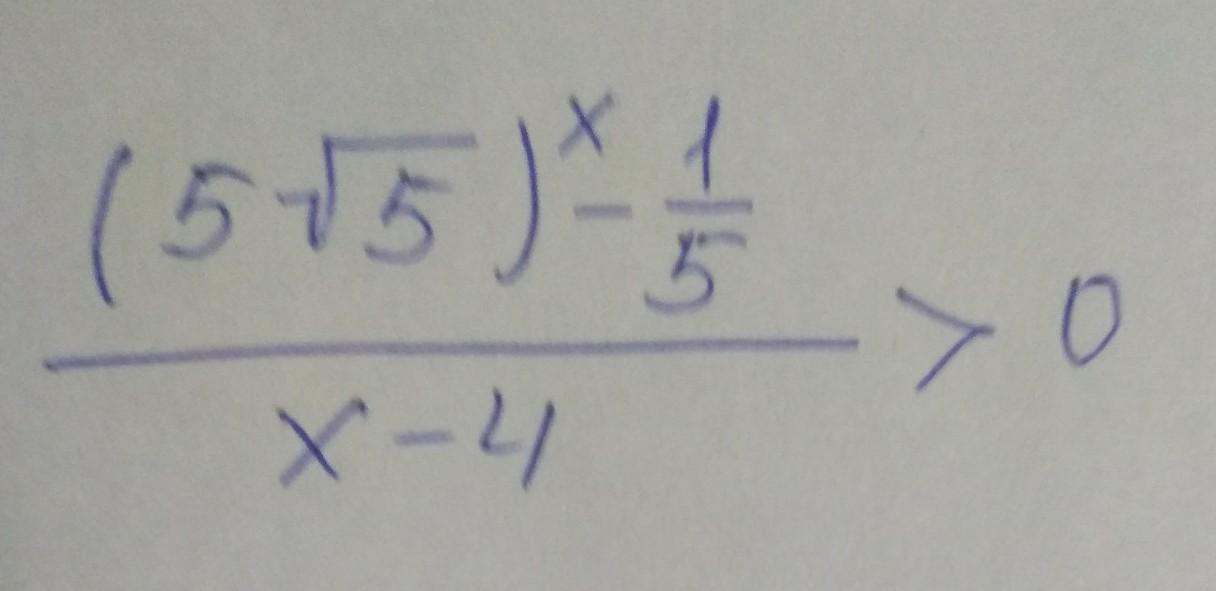 (5√5)ˣ - 1/5
x - 4 > 0